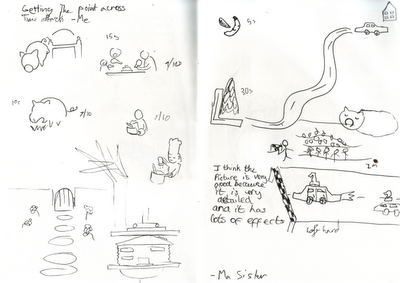 Getting The point across
Two attach - Me
15s
9/10
10s
7/10
7/10
5s
20s
2m
I think the
Picture is very
good because
it is very
detailed
and it has
lots of effects
left hand
- My Sister